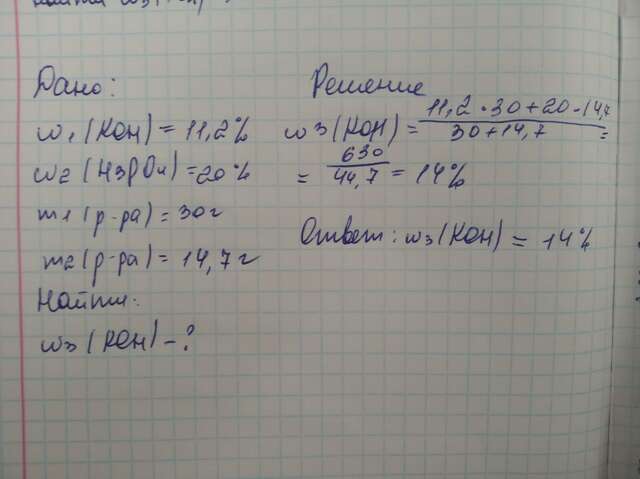 Дано:
w1 (KOH) = 11,2%
w2 (H3PO4) = 20%
m1 (р-ра) = 30г
m2 (р-ра) = 14,7 г
Найти:
w3 (KOH) - ?
Решение
w3 (KOH) = 11,2 · 30 + 20 · 14,7 / 30 + 14,7 =
= 630 / 44,7 = 14%
Ответ: w3 (KOH) = 14%